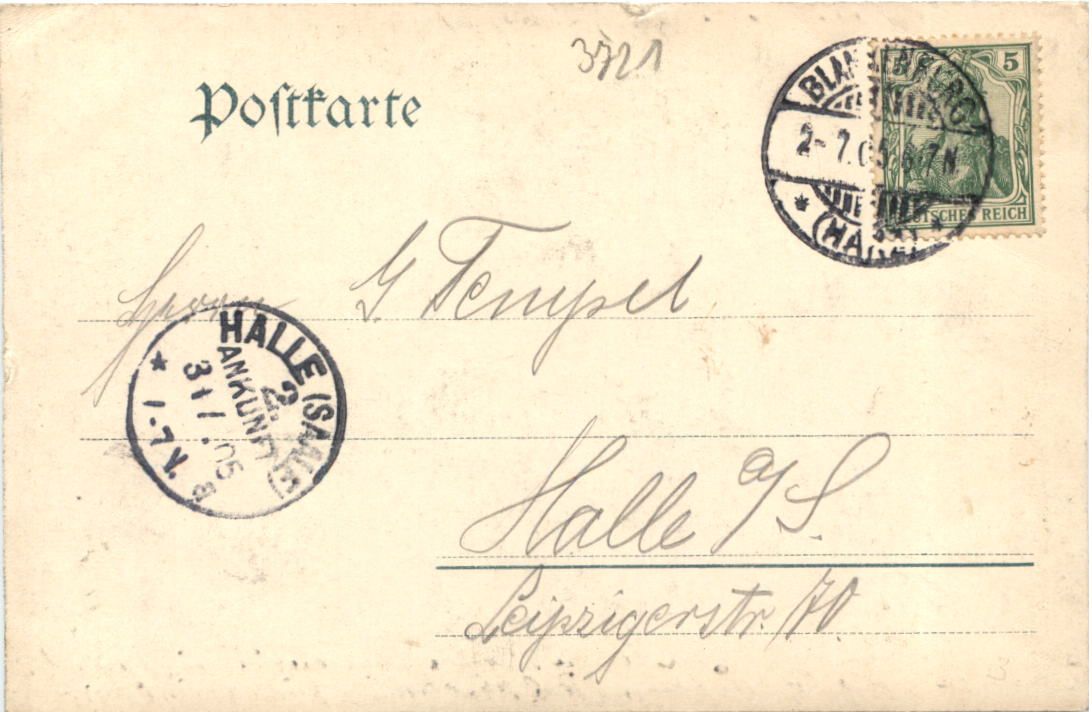 3721
Postkarte
BLANKENBURG
2-7.05.6-7N.
* (HARZ) *
5
DEUTSCHES REICH
Herrn G. Tempel
HALLE (SAALE)
2
ANKUNFT
3 7.05
* 1-7.V.
Halle a/S.
Leipzigerstr. 70.